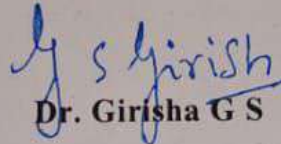 G S Girish
Dr. Girisha G S